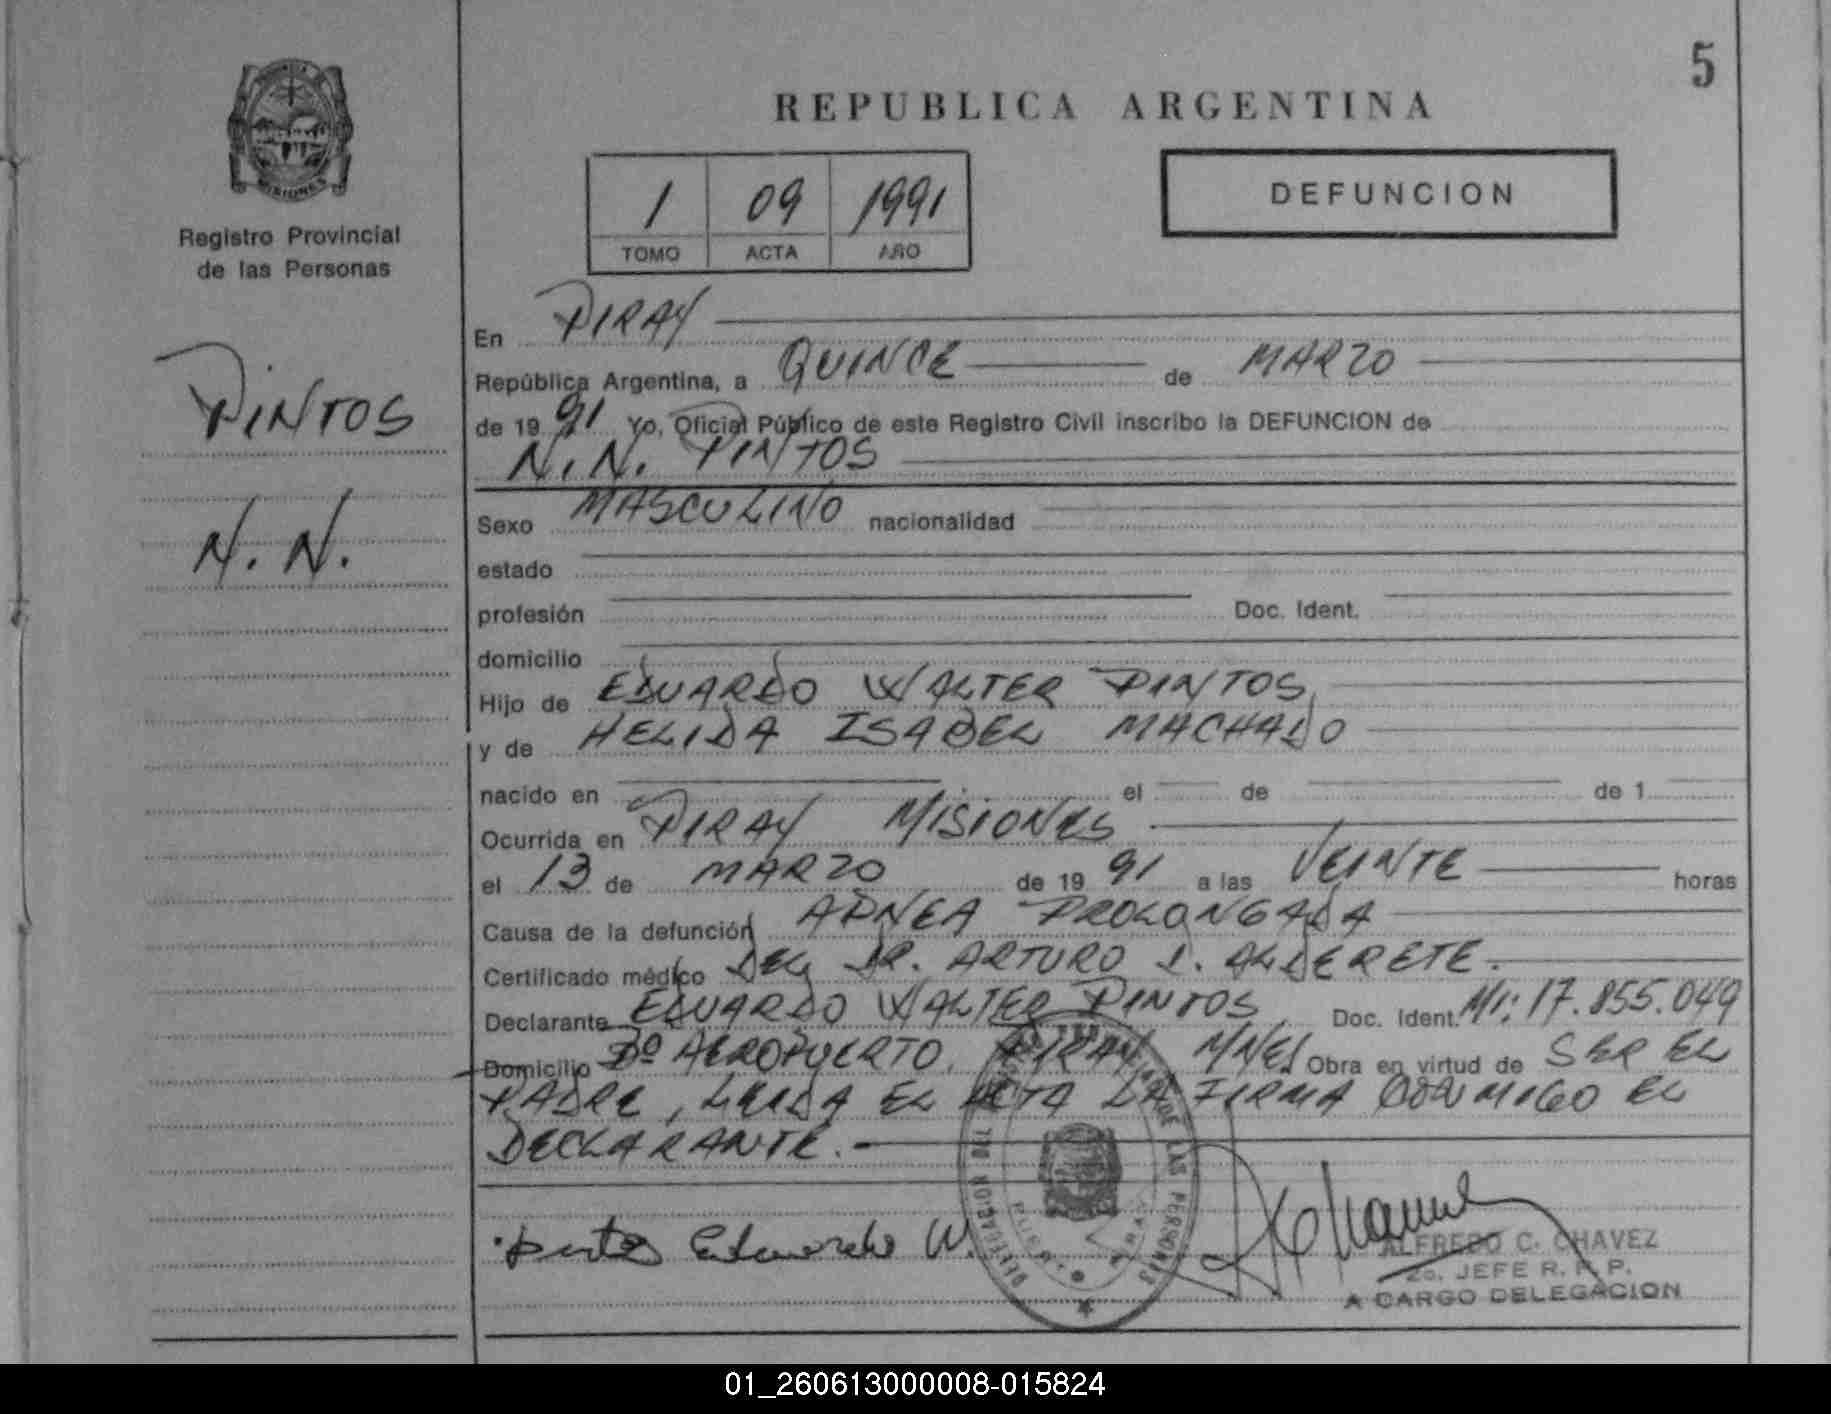 5
REPUBLICA ARGENTINA
MISIONES
Registro Provincial
de las Personas
1 09 1991
TOMO ACTA AÑO
DEFUNCION
PINTOS
N.N.
En PIRAY
República Argentina, a QUINCE de MARZO
de 1991 Yo, Oficial Público de este Registro Civil inscribo la DEFUNCION de
N.N. PINTOS
Sexo MASCULINO nacionalidad
estado
profesión Doc. Ident.
domicilio
Hijo de EDUARDO WALTER PINTOS
y de HELIDA ISABEL MACHADO
nacido en el de de 1
Ocurrida en PIRAY MISIONES
el 13 de MARZO de 1991 a las VEINTE horas
Causa de la defunción APNEA PROLONGADA
Certificado médico DEL DR. ARTURO D. ALDERETE.
Declarante EDUARDO WALTER PINTOS Doc. Ident. MI: 17.855.049
Domicilio Bº AEROPUERTO, PIRAY MNES Obra en virtud de SER EL
PADRE, LEIDA EL ACTA LA FIRMA CONMIGO EL
DECLARANTE.-
Pintos Eduardo W.
DELEGACION DEL REGISTRO DE LAS PERSONAS
ALFREDO C. CHAVEZ
2o. JEFE R. P. P.
A CARGO DELEGACION
01_260613000008-015824